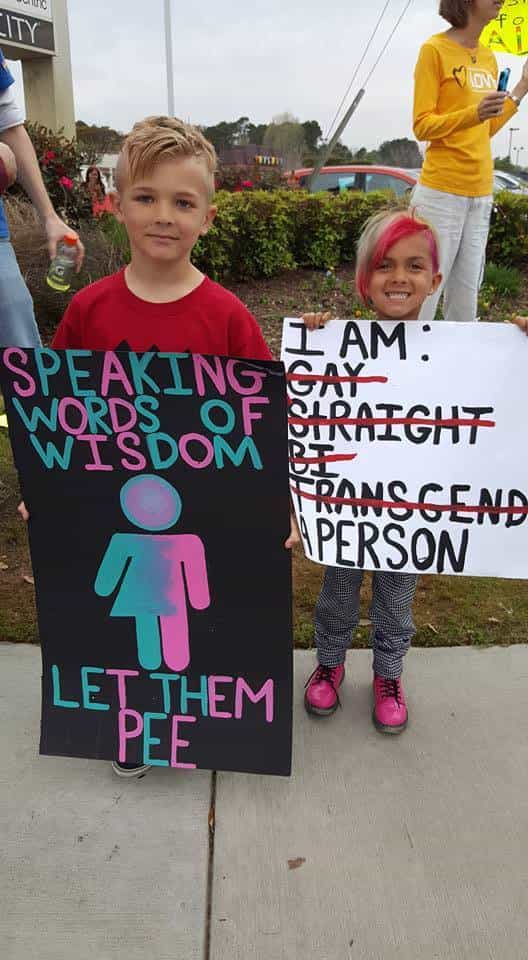 CITY
LOV
SPEAKING
WORDS OF
WISDOM
LET THEM
PEE
I AM:
GAY
STRAIGHT
BI
TRANSGEND
A PERSON